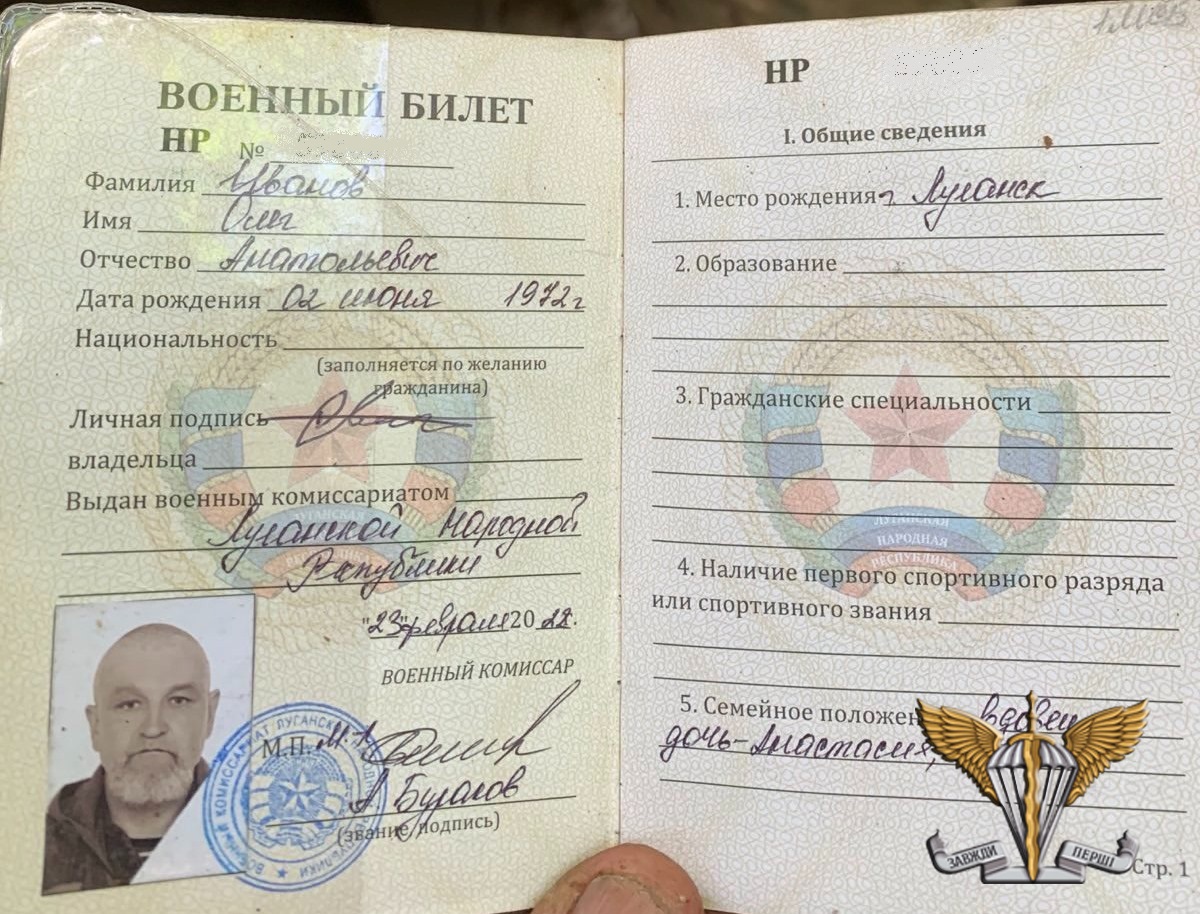 ВОЕННЫЙ БИЛЕТ
НР №
Фамилия Иванов
Имя Олег
Отчество Анатольевич
Дата рождения 02 июня 1972 г
Национальность
(заполняется по желанию
гражданина)
Личная подпись
владельца
Выдан военным комиссариатом
Луганской Народной
Республики
"23" февраля 2022.
ВОЕННЫЙ КОМИССАР
М.П.
(звание, подпись)
ЛУГАНСКАЯ
НАРОДНАЯ
РЕСПУБЛИКА
НР
I. Общие сведения
1. Место рождения г Луганск
2. Образование
3. Гражданские специальности
ЛУГАНСКАЯ
НАРОДНАЯ
РЕСПУБЛИКА
4. Наличие первого спортивного разряда
или спортивного звания
5. Семейное положен вдовец
дочь-Анастасия,
ЗАВЖДИ ПЕРШІ
Стр. 1